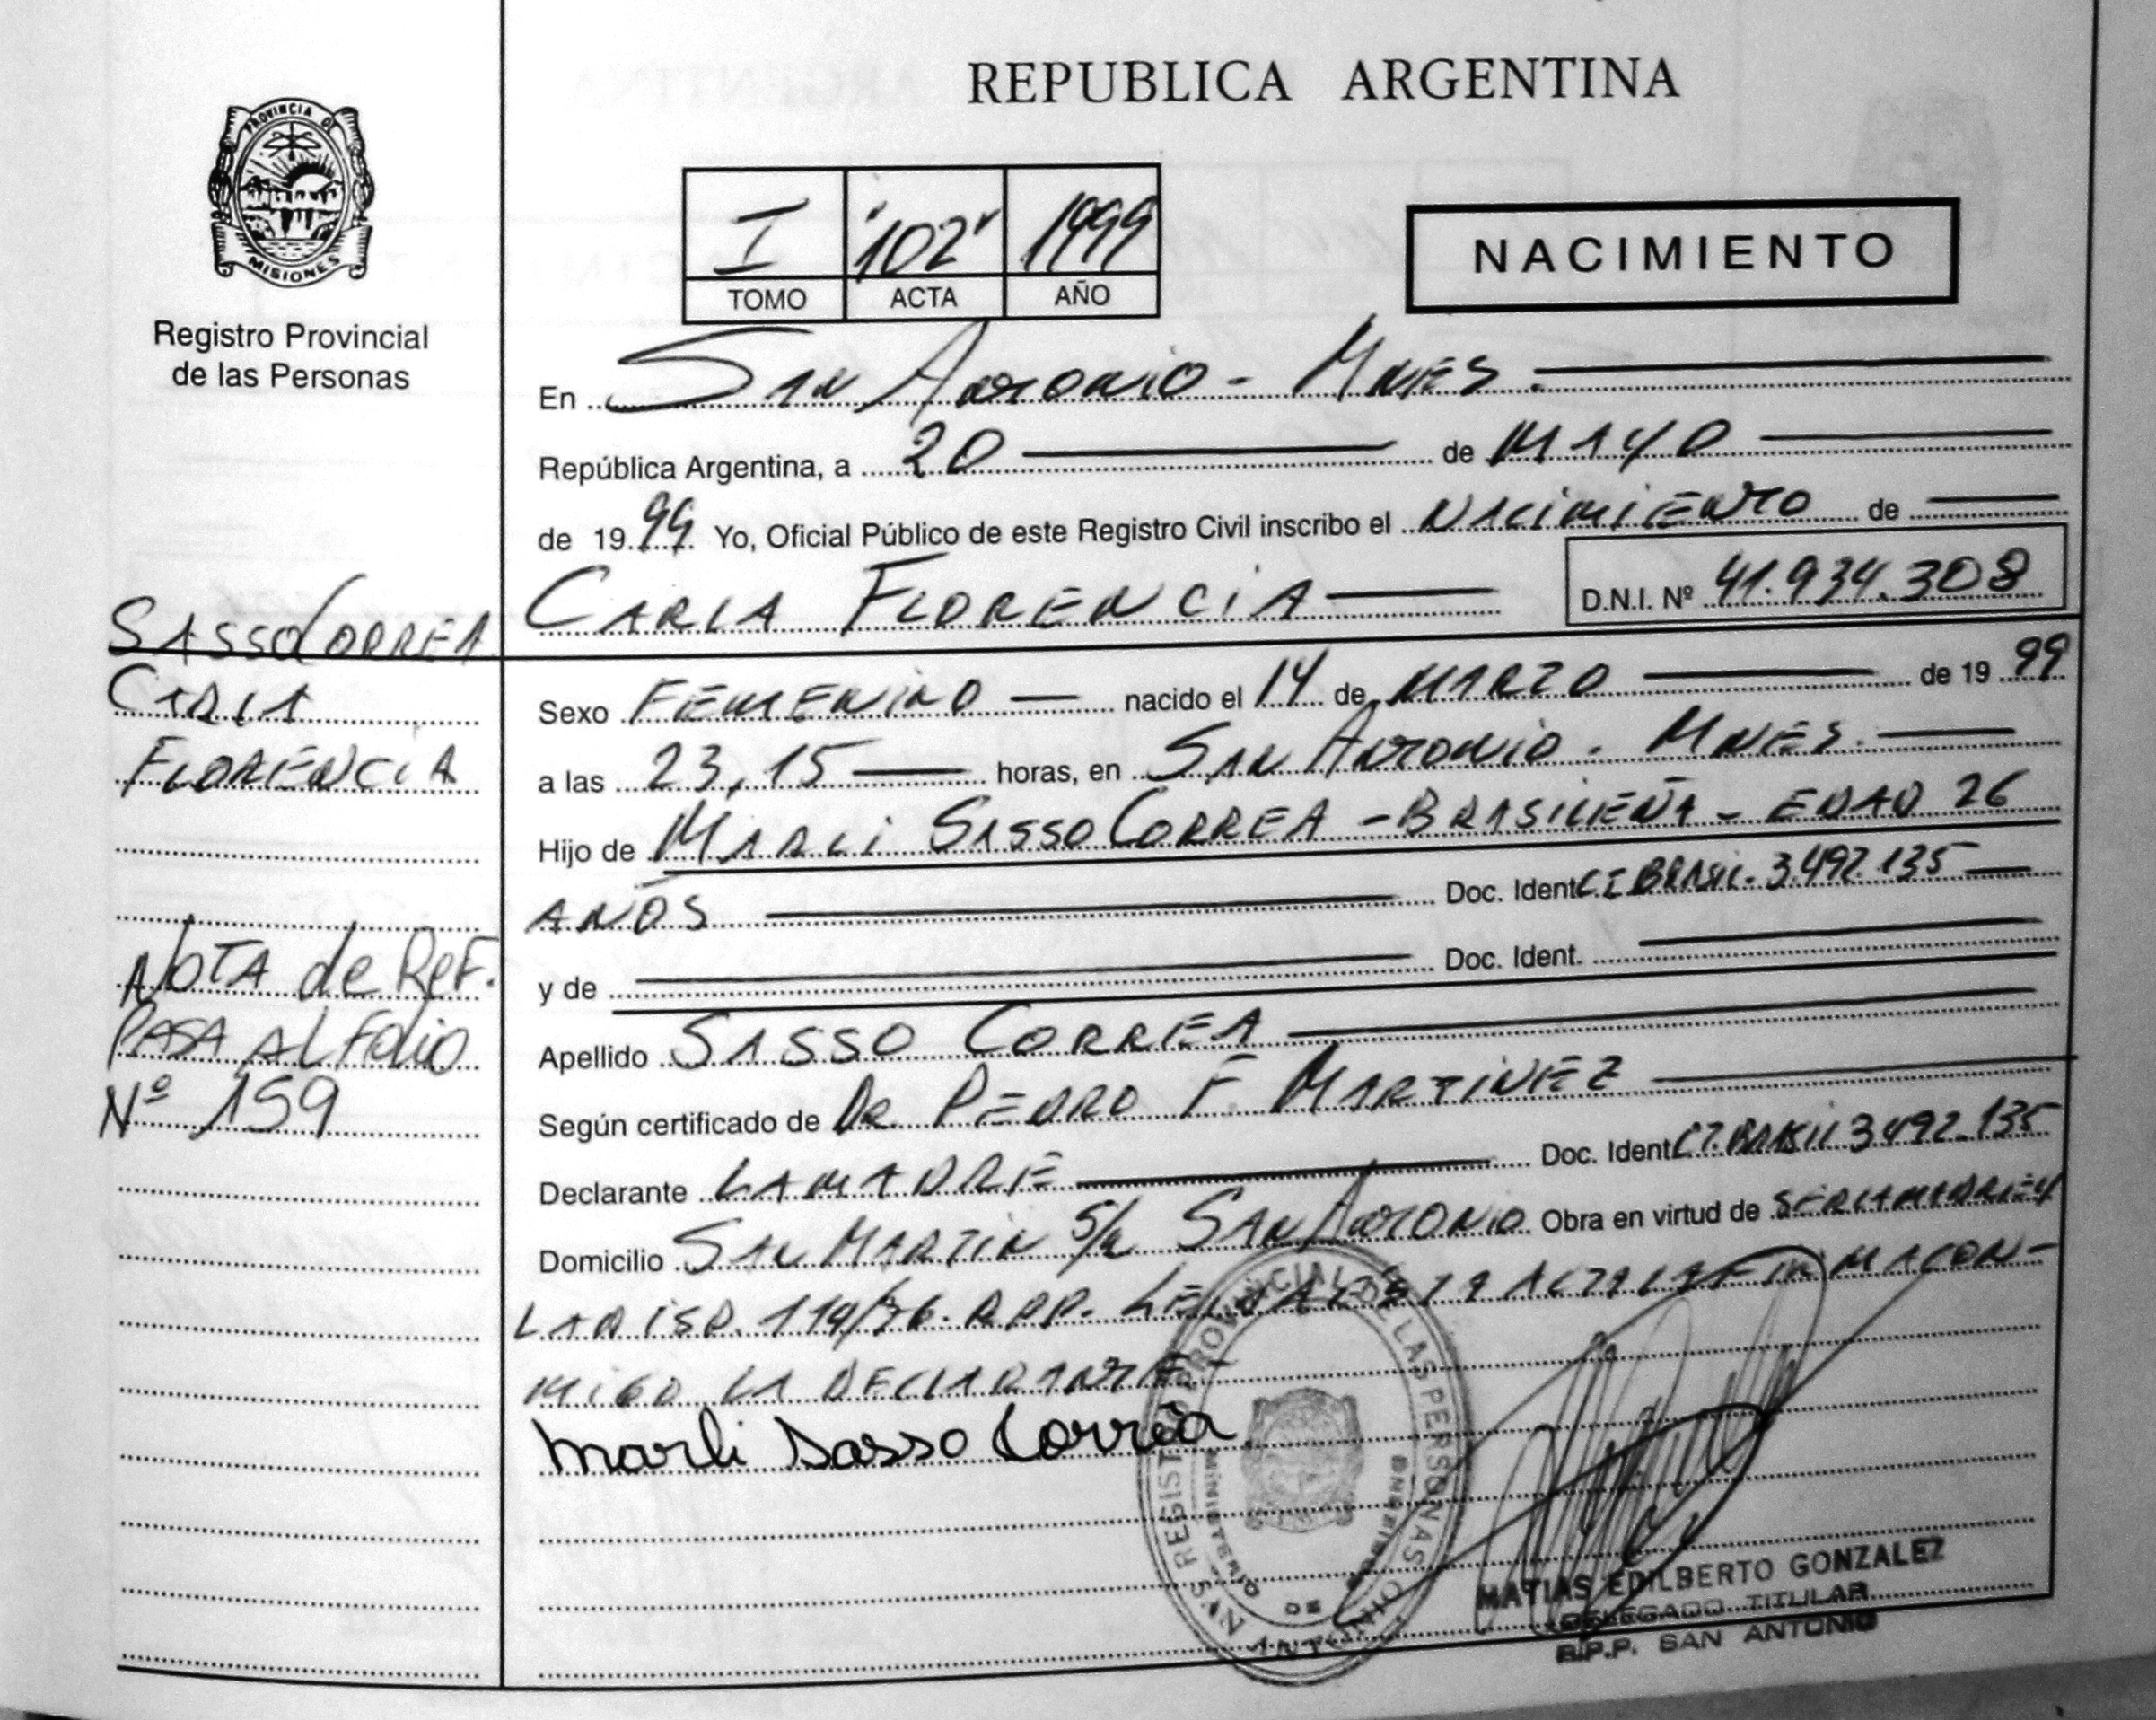 REPUBLICA ARGENTINA
PROVINCIA DE
MISIONES
Registro Provincial
de las Personas
I '102' 1999
TOMO ACTA AÑO
NACIMIENTO
En San Antonio - Mnes.
República Argentina, a 20 de MAYO
de 1999 Yo, Oficial Público de este Registro Civil inscribo el NACIMIENTO de
CARLA FLORENCIA D.N.I. Nº 41.934.308
SASSO CORREA
CARLA
FLORENCIA
NOTA de Ref.
PASA AL folio
Nº 159
Sexo FEMENINO nacido el 14 de MARZO de 1999
a las 23,15 horas, en SAN ANTONIO. MNES.
Hijo de MARLI SASSO CORREA - BRASILEÑA - EDAD 26
AÑOS Doc. Ident C.I BRASIL. 3.492.135
y de Doc. Ident.
Apellido SASSO CORREA
Según certificado de DR. PEDRO F. MARTINEZ
Declarante LA MADRE Doc. Ident C.I. BRASIL 3492.135
Domicilio SAN MARTIN S/N SAN ANTONIO Obra en virtud de SER LA MADRE Y
LA DISP. 119/96. RPP. LEIDA ESTA ACTA LA FIRMA CON-
MIGO LA DECLARANTE
Marli Sasso Corrêa
REGISTRO PROVINCIAL DE LAS PERSONAS
MINISTERIO DE GOBIERNO
MATIAS EDILBERTO GONZALEZ
DELEGADO TITULAR
R.P.P. SAN ANTONIO